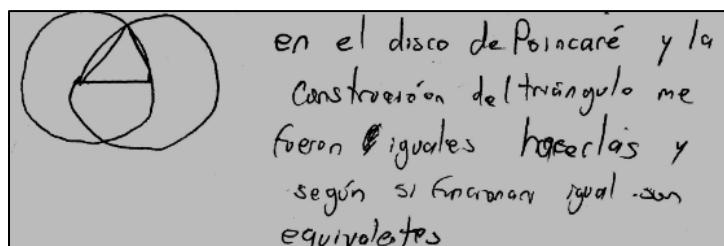 en el disco de Poincaré y la
construcción del triángulo me
fueron iguales hacerlas y
según si funcionan igual son
equivalentes